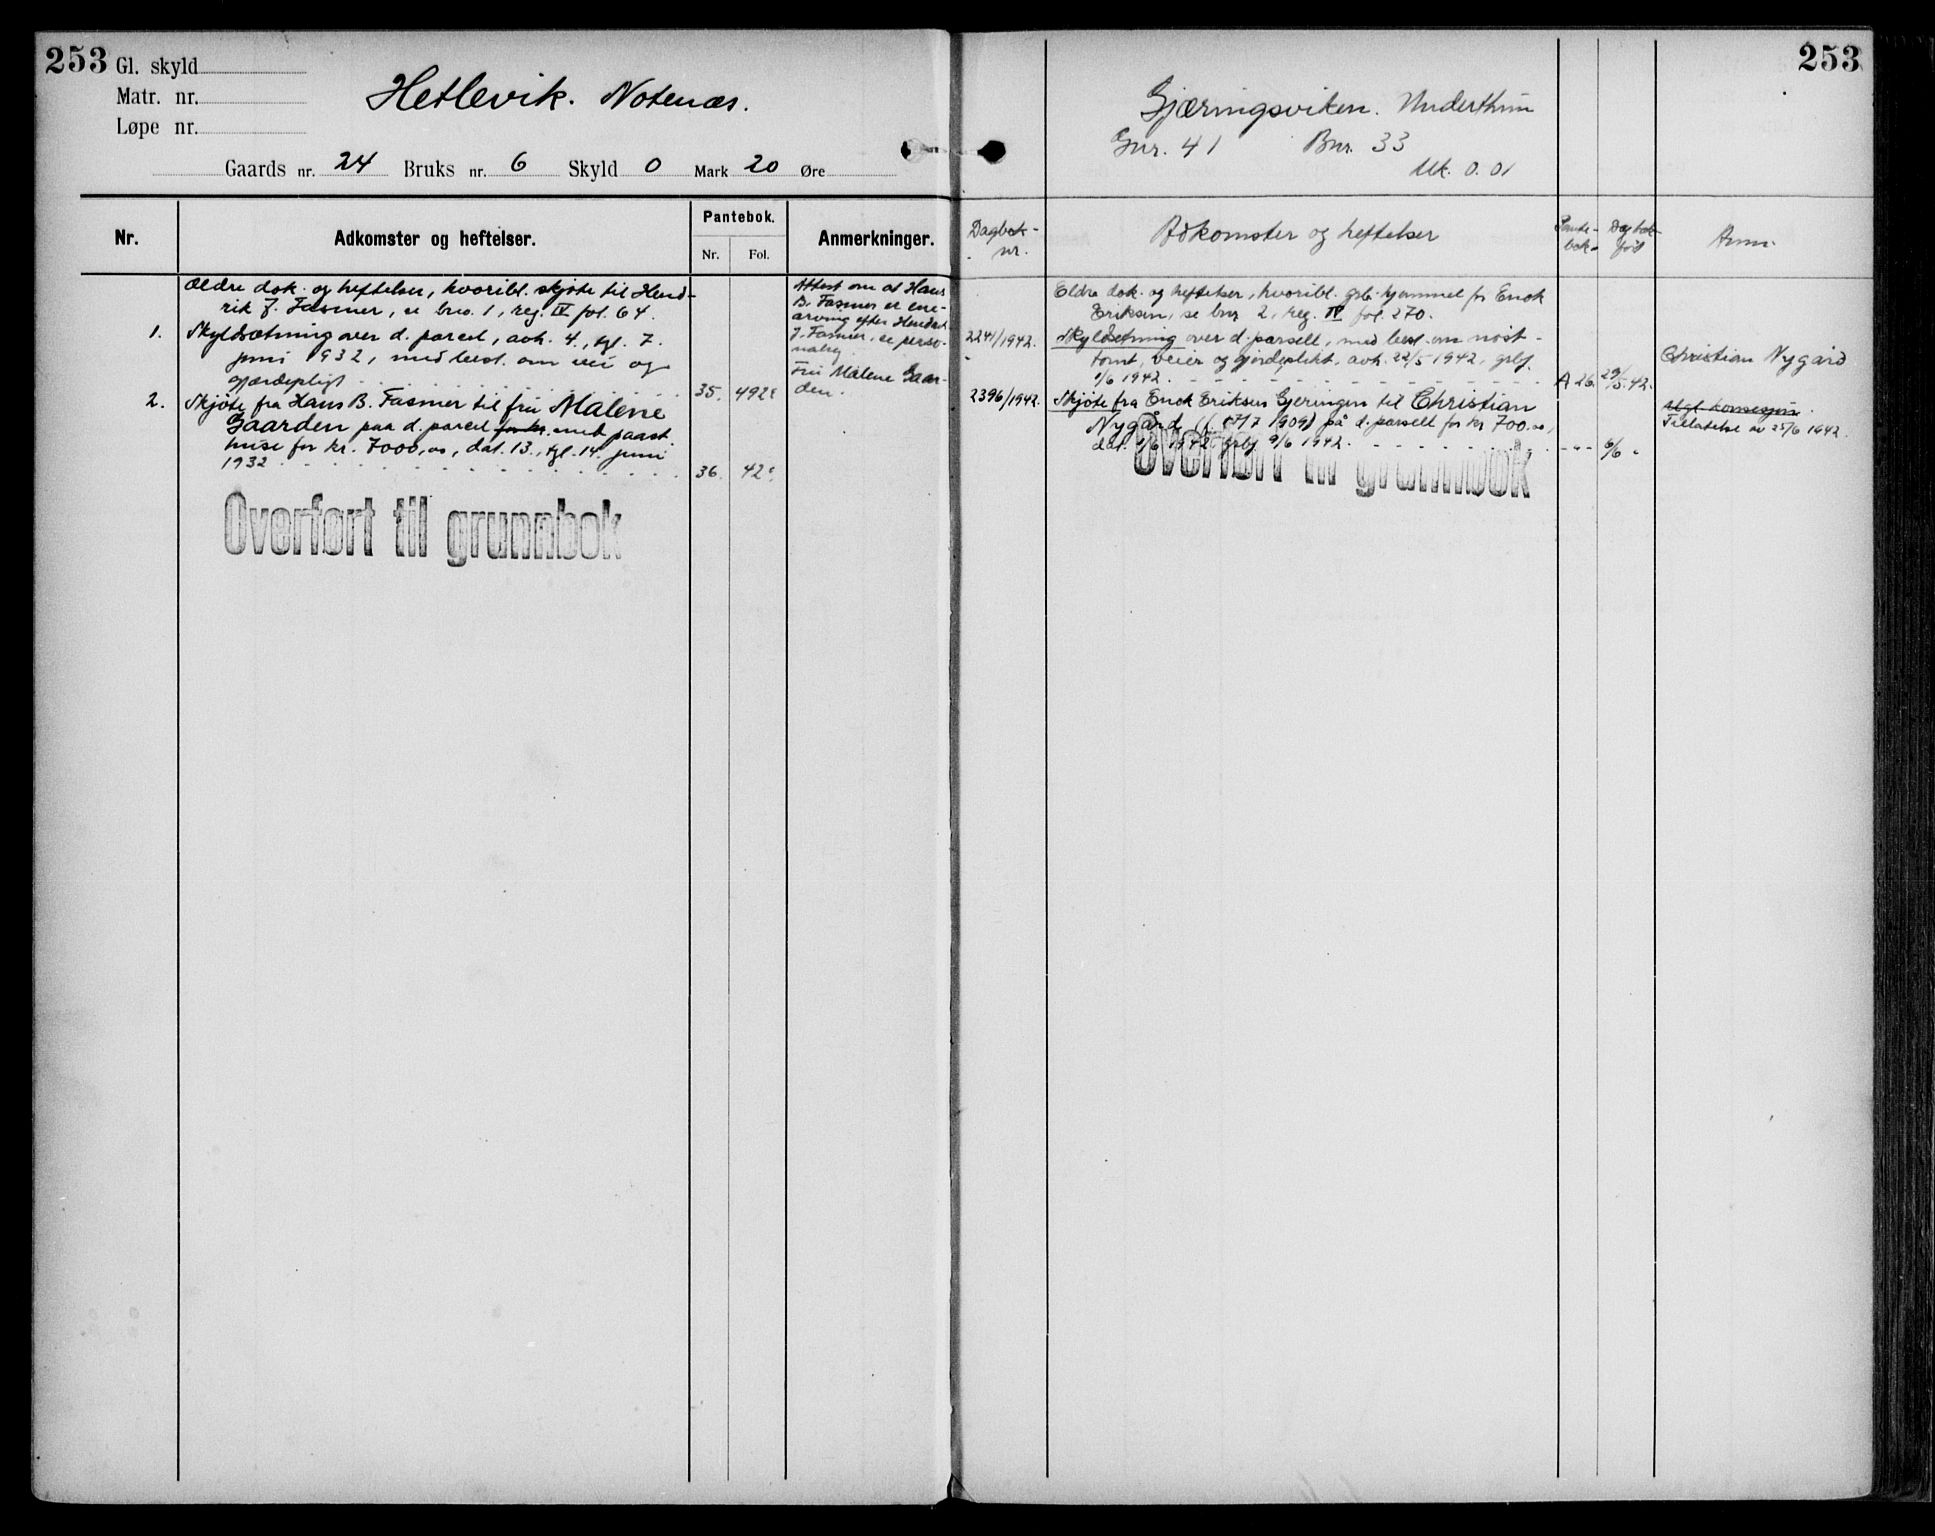 253
Gl. skyld
Matr. nr.
Løpe nr.
Hetlevik. Notenæs.
Gaards nr. 24 Bruks nr. 6 Skyld 0 Mark 20 Øre
Nr.
Adkomster og heftelser.
Pantebok.
Nr. Fol.
Anmerkninger.
Ældre dok. og heftelser, hvoribl. skjøte til Hend-
rik J. Fasmer, se bno. 1, reg. IV fol. 64.
1. Skyldsætning over d. parcel, avh. 4., tgl. 7.
juni 1932, med best. om vei og
gjærdepligt 35. 492
2. Skjøte fra Hans B. Fasmer til fru Malene
Gaarden paa d. parcel for kr. med paast.
huse for kr. 7000,00, dat. 13., tgl. 14. juni
1932 36. 42
Attest om at Hans
B. Fasmer er ene-
arving efter Hendrik
J. Fasmer, se perso-
nalreg.
Fru Malene Gaar-
den.
Overført til grunnbok
253
Gjæringsviken. Underthun
Gnr. 41 Bnr. 33
Mk. 0.01
Dagbok-
nr.
Adkomster og heftelser
Pante-
bok
Dagbok-
ført
Anm.
Eldre dok. og heftelser, hvoribl. grb. hjemmel for Enok
Eriksen, se bnr. 2, reg. IV fol. 270.
2241/1942. Skyldsetning over d. parsell, med best. om nøst-
tomt, veier og gjerdeplikt. avh. 22/5 1942, grbf.
1/6 1942. A 26. 29/5.42.
Christian Nygård
2396/1942. Skjøte fra Enok Eriksen Gjeringen til Christian
Nygård (f. 1909) på d. parsell for kr 700.00,
dat. 1/6 1942 grbf 9/6 1942. - - - 6/6 -
Utgl. konsesjon.
Tillatelse av 25/6 1942.
Overført til grunnbok